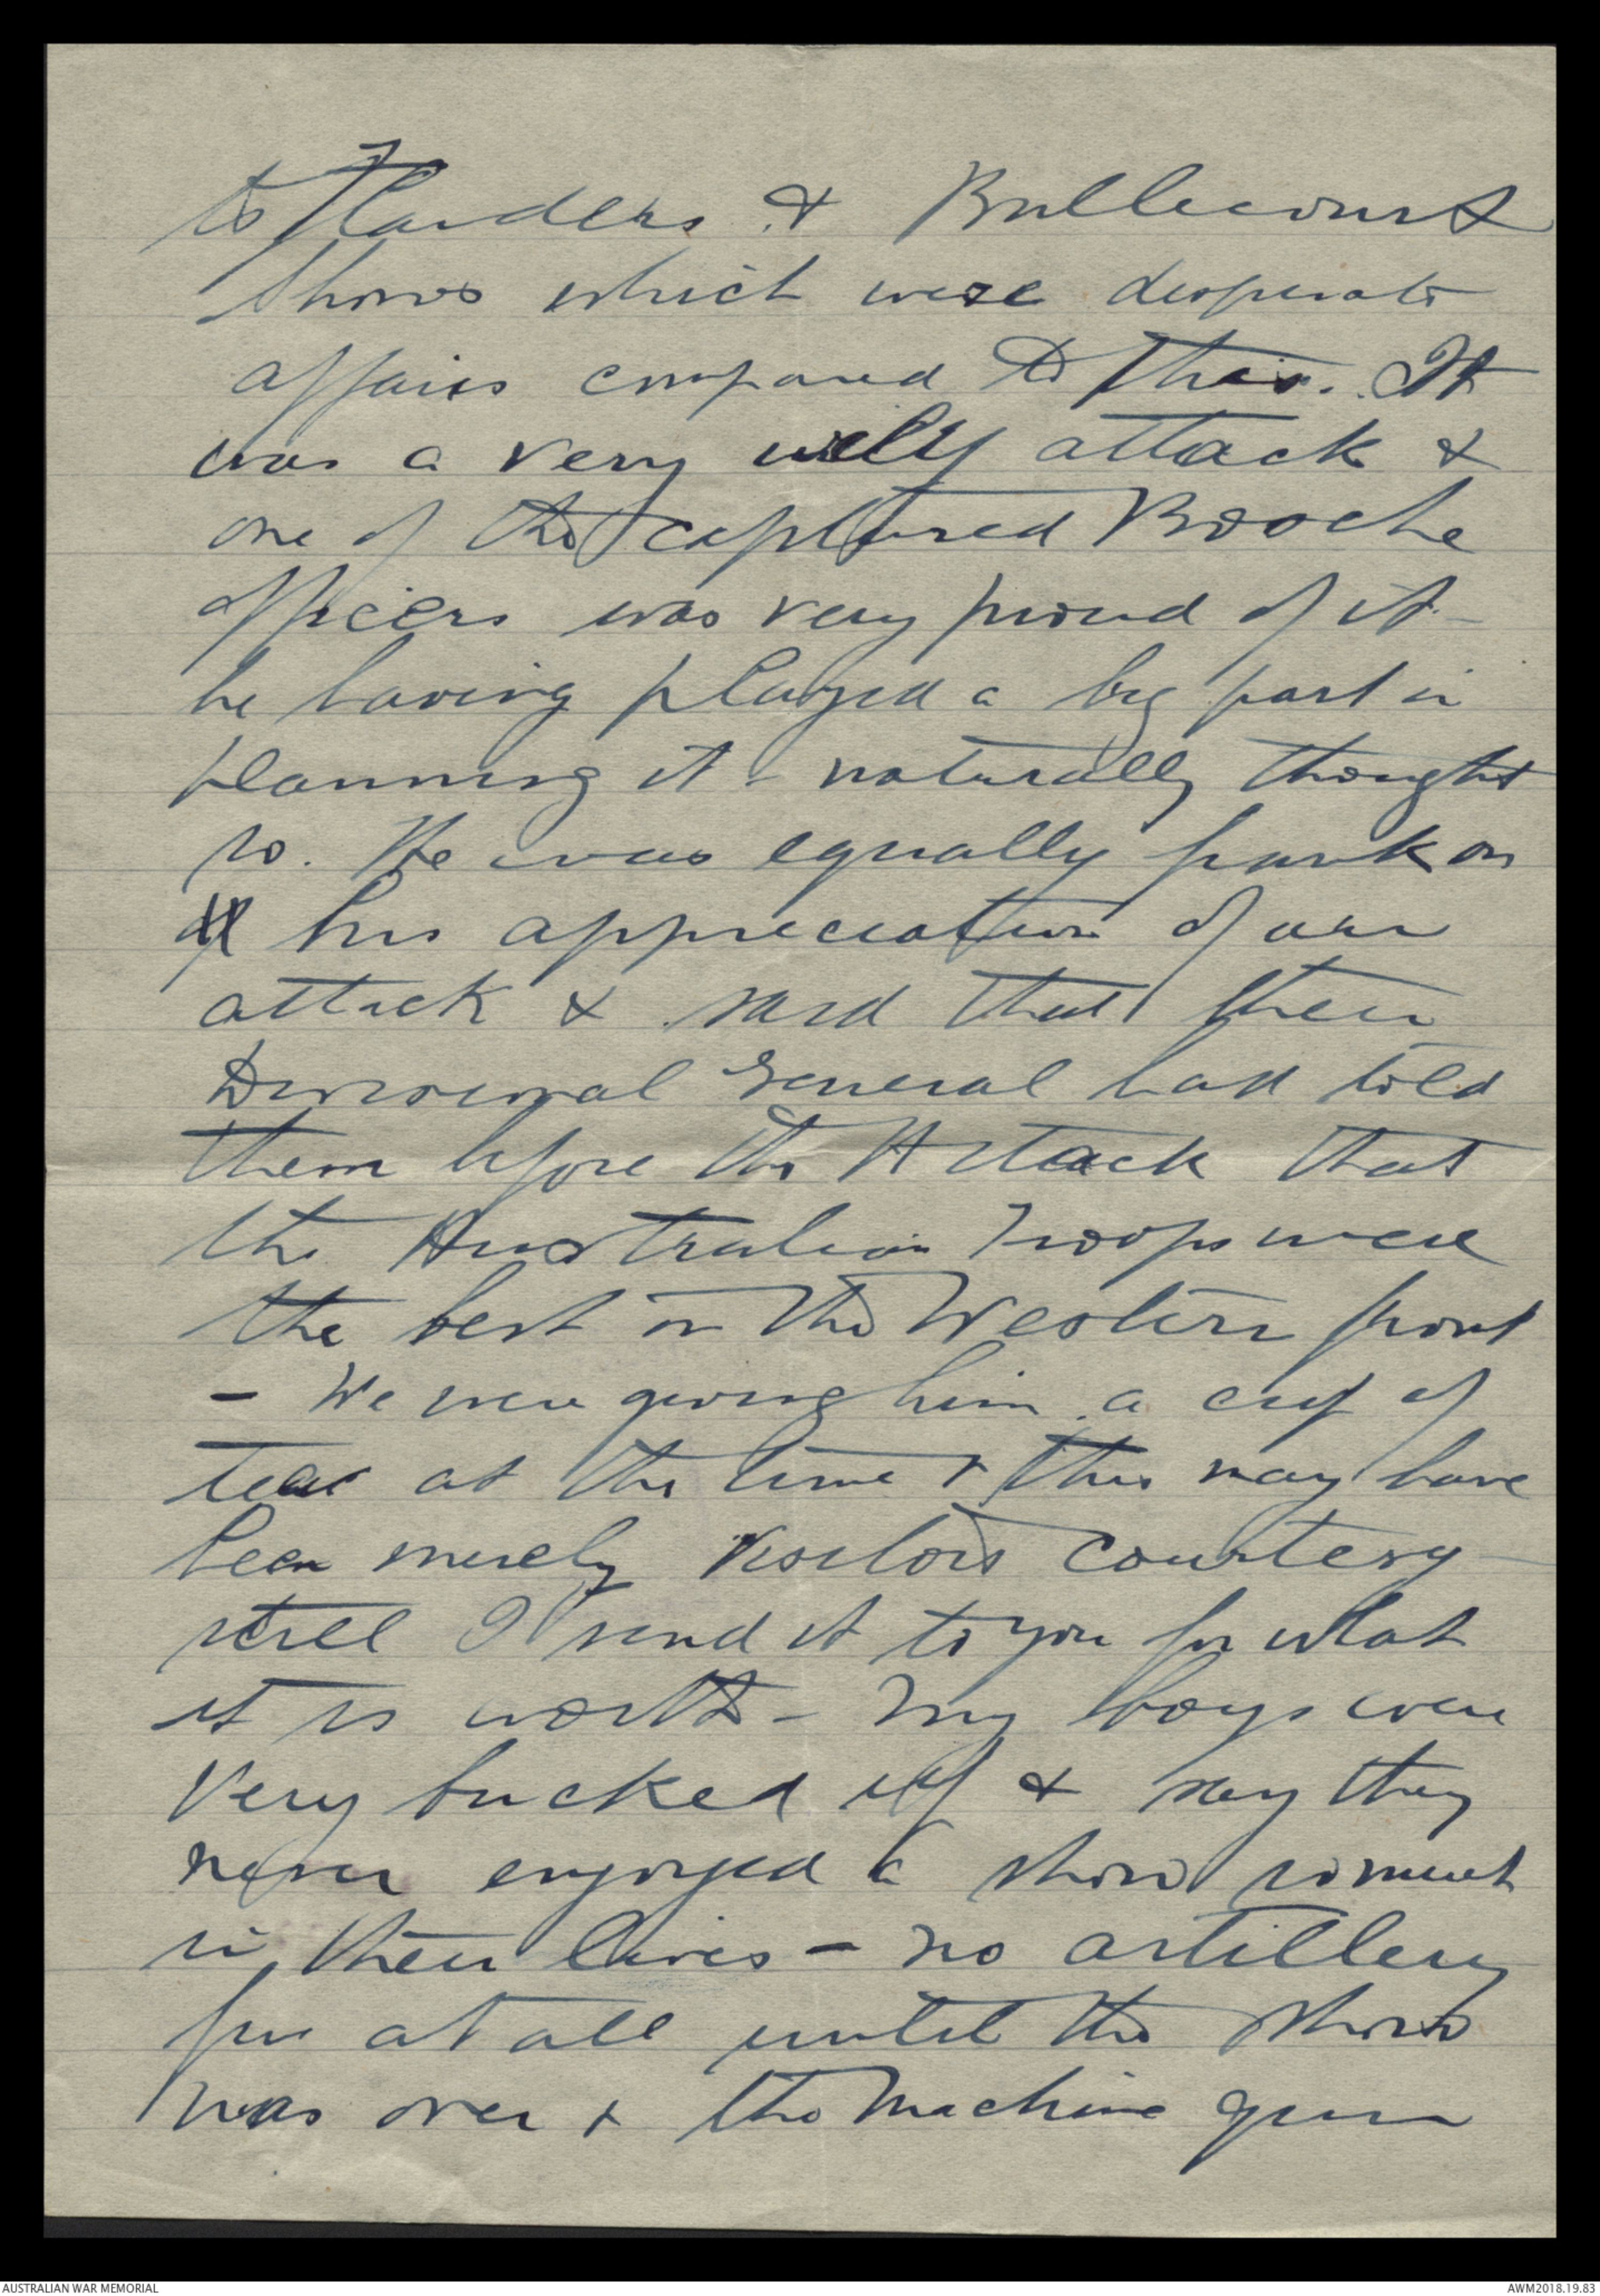 to Flanders & Bullecourt
shows which were desperate
affairs compared to this. It
was a very wily attack &
one of the captured Booche
officers was very proud of it -
he having played a big part in
planning it - naturally thought
so. He was equally frank on
his appreciation of our
attack & said that their
Divisional General had told
them before the Attack that
the Australian Troops were
the best on the Western front
- We were giving him a cup of
tea at the time & this may have
been merely visitors courtesy
still I send it to you for what
it is worth - My boys were
very bucked up & say they
never enjoyed a show so much
in their lives - no artillery
fire at all until the show
was over & the machine gun
AUSTRALIAN WAR MEMORIAL
AWM2018.19.83